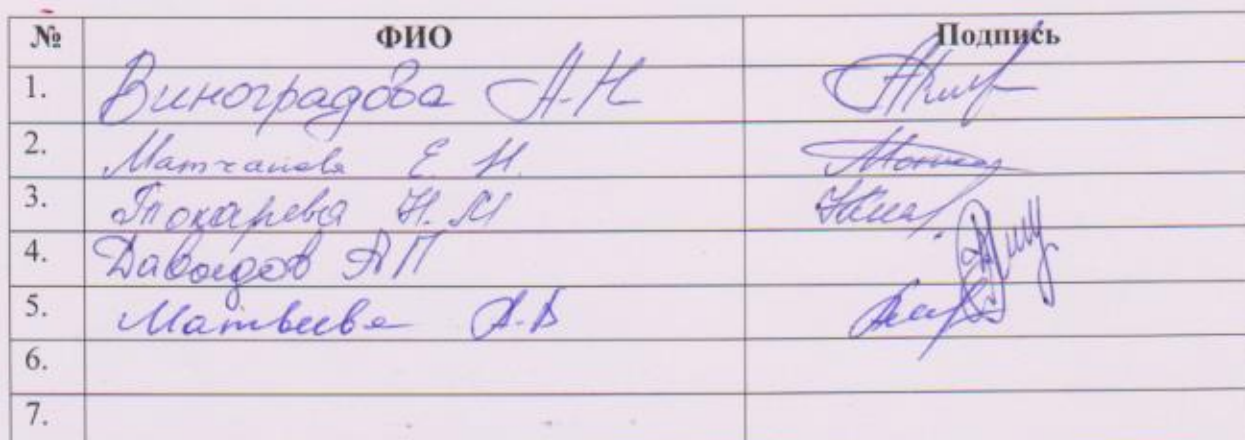 № ФИО Подпись
1. Виноградова А.Н
2. Матчанова Е. Н.
3. Токарева Н. М
4. Давыдов АП
5. Матвеева А.В
6.
7.